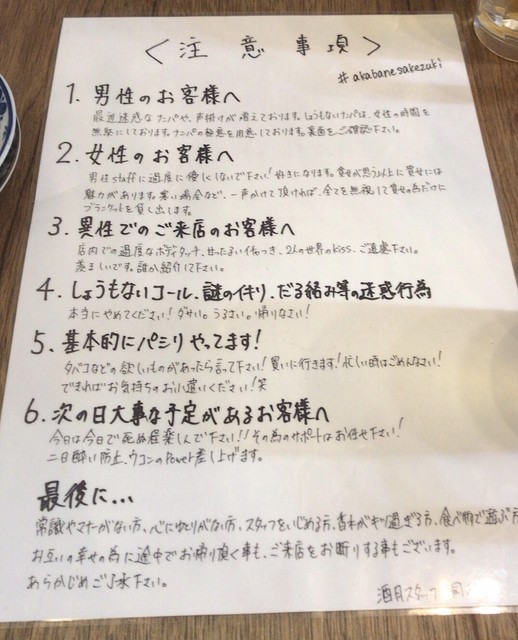 <注意事項>
#akabanesakezuki
1. 男性のお客様へ
最近迷惑なナンパや、声掛けが増えております。しょうもないナンパは、女性の時間を
無駄にしております。ナンパの極意を用意しております。裏面をご確認下さい。
2. 女性のお客様へ
男性staffに過度に優しくしないで下さい!好きになります。貴女が思う以上に貴女には
魅力があります。寒い場合など、一声かけて頂ければ、全てを無視して貴女の為だけに
ブランケットを貸し出します。
3. 異性でのご来店のお客様へ
店内での過度なボディタッチ、甘ったるいイチャつき、2人の世界のkiss、ご遠慮下さい。
羨ましいです。誰か紹介して下さい。
4. しょうもないコール、謎のイキり、だる絡み等の迷惑行為
本当にやめてください!ダサい。うるさい。帰りなさい!
5. 基本的にパシリやってます!
タバコなどの欲しいものがあったら言って下さい!買いに行きます!忙しい時はごめんなさい!
できればお気持ちのお小遣いください!笑
6. 次の日大事な予定があるお客様へ
今日は今日で死ぬ程楽しんで下さい!!その為のサポートはお任せ下さい!
二日酔い防止、ウコンのPower差し上げます。
最後に...
常識やマナーがない方、心にゆとりがない方、スタッフをいじめる方、香水がキツ過ぎる方、食べ物で遊ぶ方
お互いの幸せの為に途中でお帰り頂く事も、ご来店をお断りする事もございます。
あらかじめご了承下さい。
酒月スタッフ一同